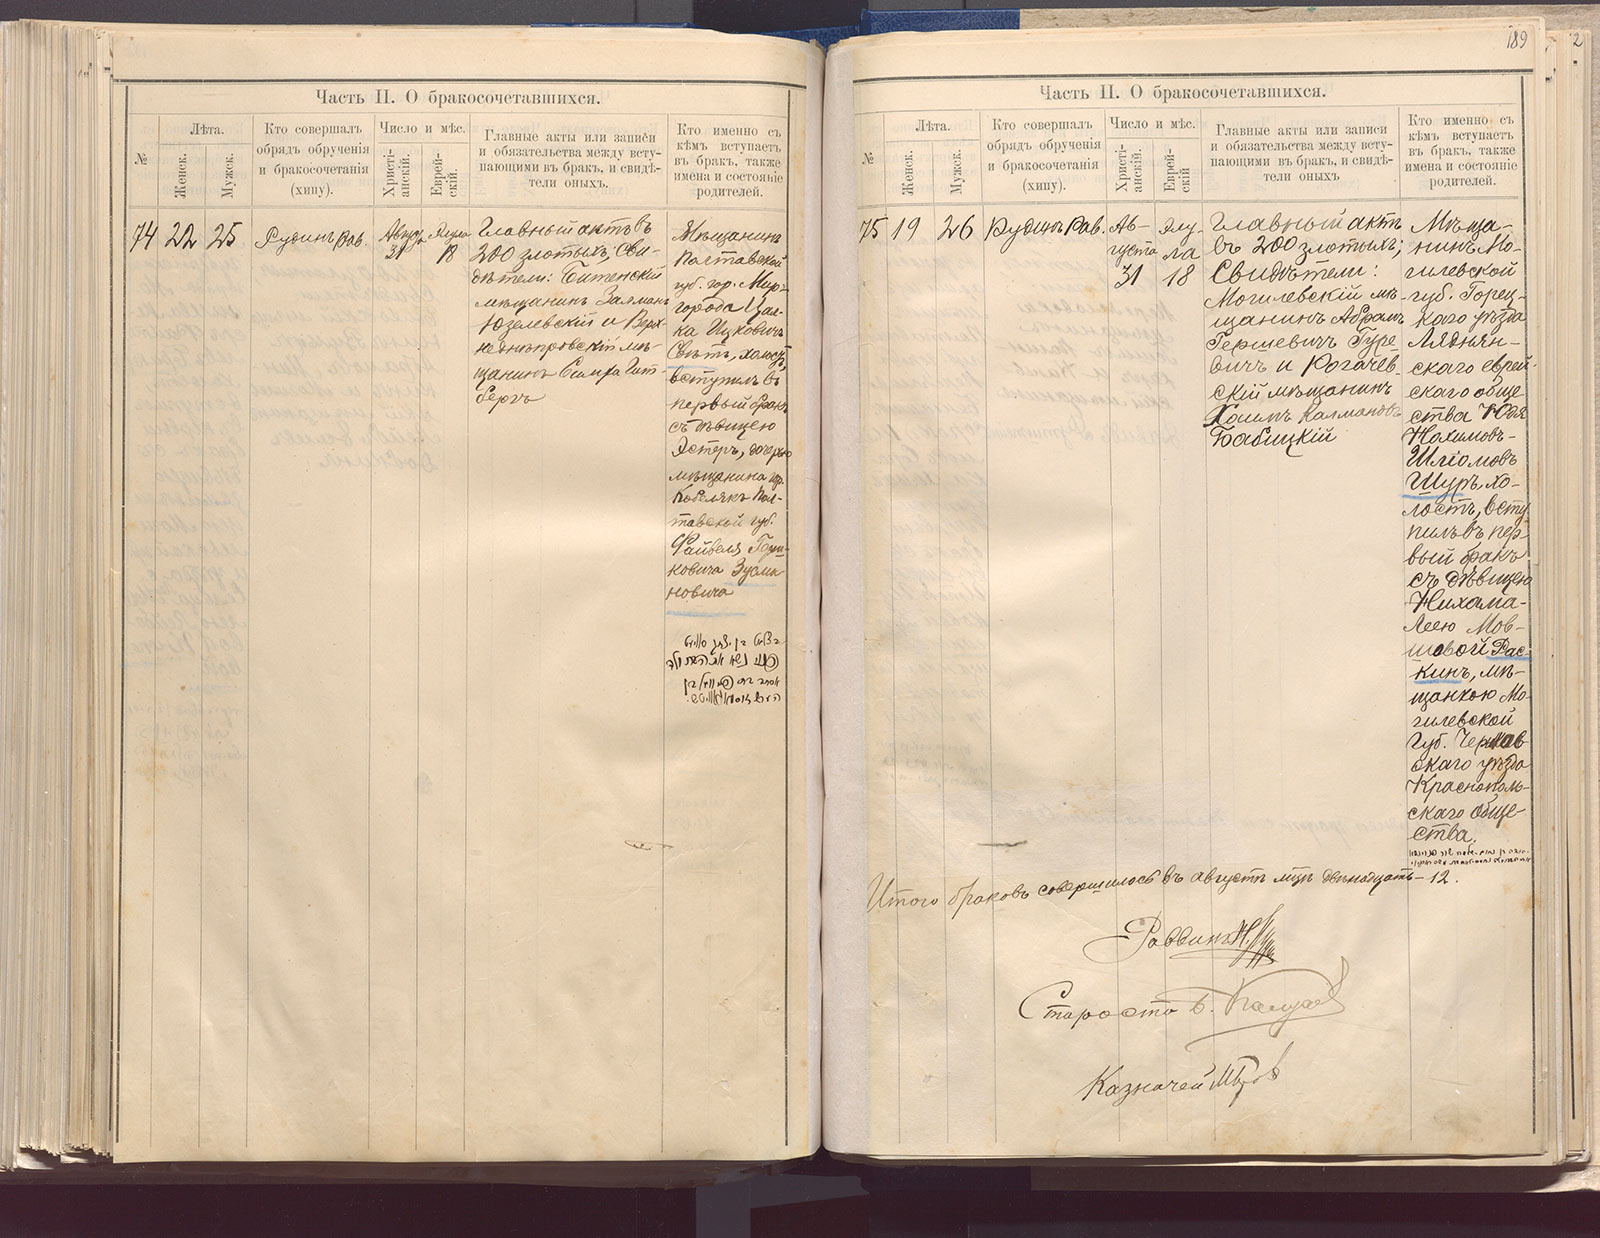 Часть II. О бракосочетавшихся.
№
Лѣта.
Женск.
Мужск.
Кто совершалъ
обрядъ обрученія
и бракосочетанія
(хипу).
Число и мѣс.
Христі-
анскій.
Еврей-
скій.
Главные акты или записи
и обязательства между всту-
пающими въ бракъ, и свидѣ-
тели оныхъ.
Кто именно съ
кѣмъ вступаетъ
въ бракъ, также
имена и состояніе
родителей.
74
22
25
Рудинъ Рав.
31
18
Главный актъ въ
200 злотыхъ; Сви-
дѣтели: Битенскій
мѣщанинъ Залманъ
Юзелевскій и Верх-
неднѣпровскій мѣ-
щанинъ
бергъ
Мѣщанинъ
Полтавской
губ. гор. Мир-
города Цал-
ка Ицковичъ
Свѣтъ, холостъ,
вступилъ въ
первый бракъ
съ дѣвицею
Эстеръ, дочерью
мѣщанина гор.
Кобелякъ Пол-
тавской губ.
Файвеля Герш-
ковича Зусма-
новича
189
2
Часть II. О бракосочетавшихся.
№
Лѣта.
Женск.
Мужск.
Кто совершалъ
обрядъ обрученія
и бракосочетанія
(хипу).
Число и мѣс.
Христі-
анскій.
Еврей-
скій
Главные акты или записи
и обязательства между всту-
пающими въ бракъ, и свидѣ-
тели оныхъ
Кто именно съ
кѣмъ вступаетъ
въ бракъ, также
имена и состояніе
родителей.
75
19
26
Рудинъ Рав.
Ав-
густа
31
Элу-
ла
18
Главный актъ
въ 200 злотыхъ;
Свидѣтели:
Могилевскій мѣ-
щанинъ Абрамъ
Гершевичъ Гуре
вичъ и Рогачев
скій мѣщанинъ
Хаимъ Калмановъ
Бабицкій
Мѣща-
нинъ Мо-
гилевской
губ. Горец-
каго уѣзда
Ляднян-
скаго еврей-
скаго обще
ства Юдя
Нохимовъ-
Шліомовъ
Шуръ, хо-
лостъ, всту
пилъ въ пер
вый бракъ
съ дѣвицею
Нихама-
Леею Мов-
шовой Рас-
кинъ, мѣ-
щанкою Мо-
гилевской
губ. Чериков
скаго уѣзда
Краснополь-
скаго обще-
ства.
Итого браковъ совершилось въ августѣ мцѣ двѣнадцать - 12.
Раввинъ
Староста Б.
Казначей